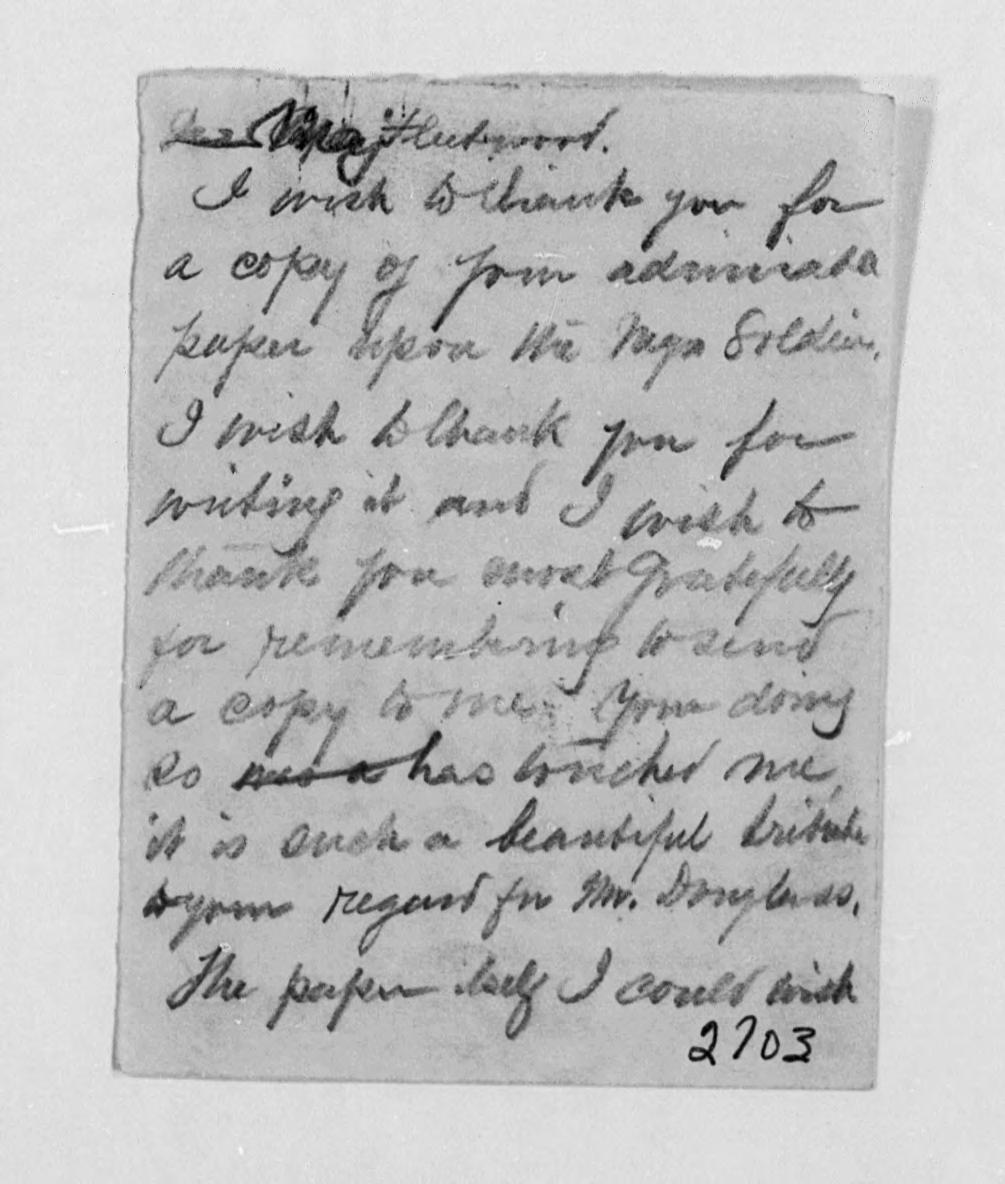 Dear Maj. Fleetwood.
I wish to thank you for
a copy of your
paper upon the Negro Soldier.
I wish to thank you for
writing it and I wish to
thank you most gratefully
for remembering to send
a copy to me. Your doing
so has touched me,
it is such a beautiful tribute
to your regard for Mr. Douglass.
The paper itself I could wish
2703